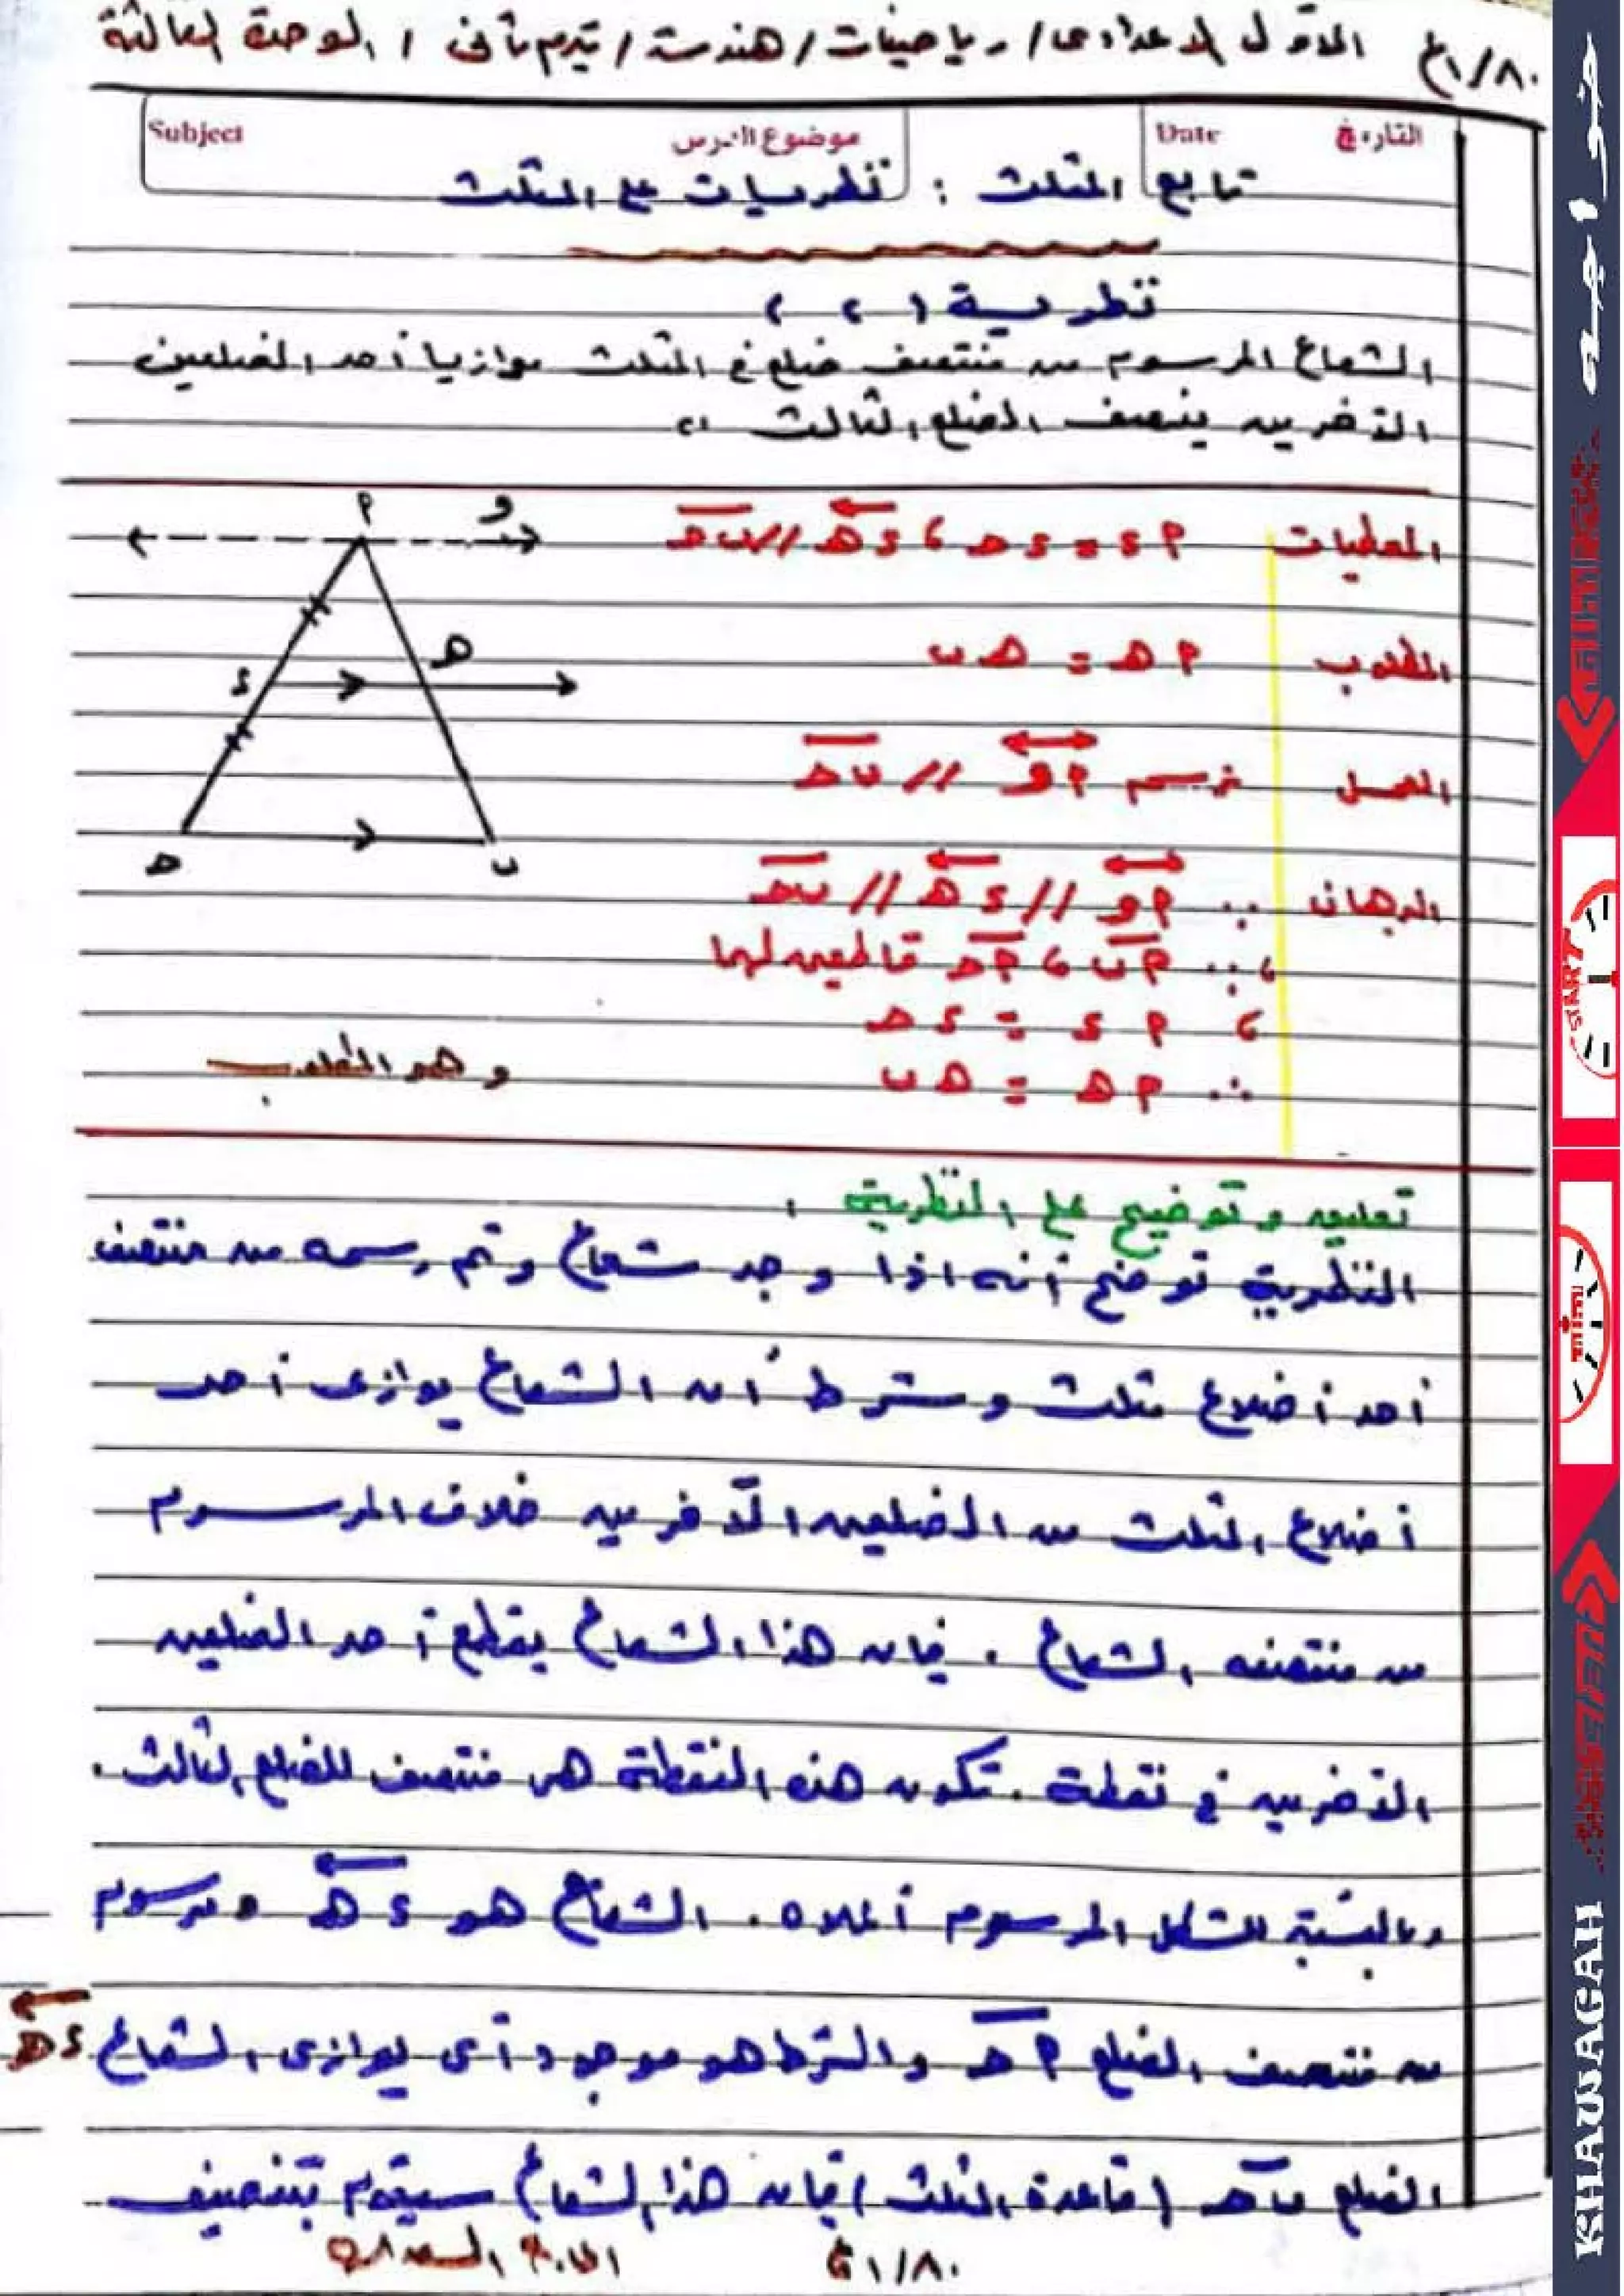 الأول الإعدادى / رياضيات / هندسة / تيرم ثانى / الوحدة الثالثة ٨٠/١ع
Subject موضوع الدرس Date التاريخ
تابع المثلث : نظريات على المثلث
نظرية (٢)
الشعاع المرسوم من منتصف ضلع فى المثلث موازيا أحد الضلعين
الآخرين ينصف الضلع الثالث "
المعطيات ٢ء = ء حـ ، ء هـ // ب حـ
المطلوب ٢ هـ = هـ ب
العمل نرسم ٢ و // ب حـ
البرهان ∵ ٢ و // ء هـ // ب حـ
، ∵ ٢ ب ، ٢ حـ قاطعين لهما
، ٢ ء = ء حـ
∴ ٢ هـ = هـ ب
وهو المطلوب
٢
و
هـ
ء
حـ
ب
تعليق وتوضيح على النظرية :
النظرية توضح أنه اذا وجد شعاع وتم رسمه من منتصف
أحد أضلاع مثلث وشرط أن الشعاع يوازى أحد
أضلاع المثلث من الضلعين الآخريين خلاف المرسوم
من منتصفه الشعاع . فإن هذا الشعاع يقطع أحد الضلعين
الآخريين فى نقطة . تكون هذه النقطة هى منتصف للضلع الثالث .
وبالنسبة للشكل المرسوم أعلاه . الشعاع هو ء هـ ومرسوم
من منتصف الضلع ٢ حـ والشرط هو موجود أى يوازى الشعاع ء هـ
الضلع ب حـ (قاعدة المثلث) فإن هذا الشعاع سيقوم بتنصيف
٨٠/١ع
خواجه
START
KHAWAGAH